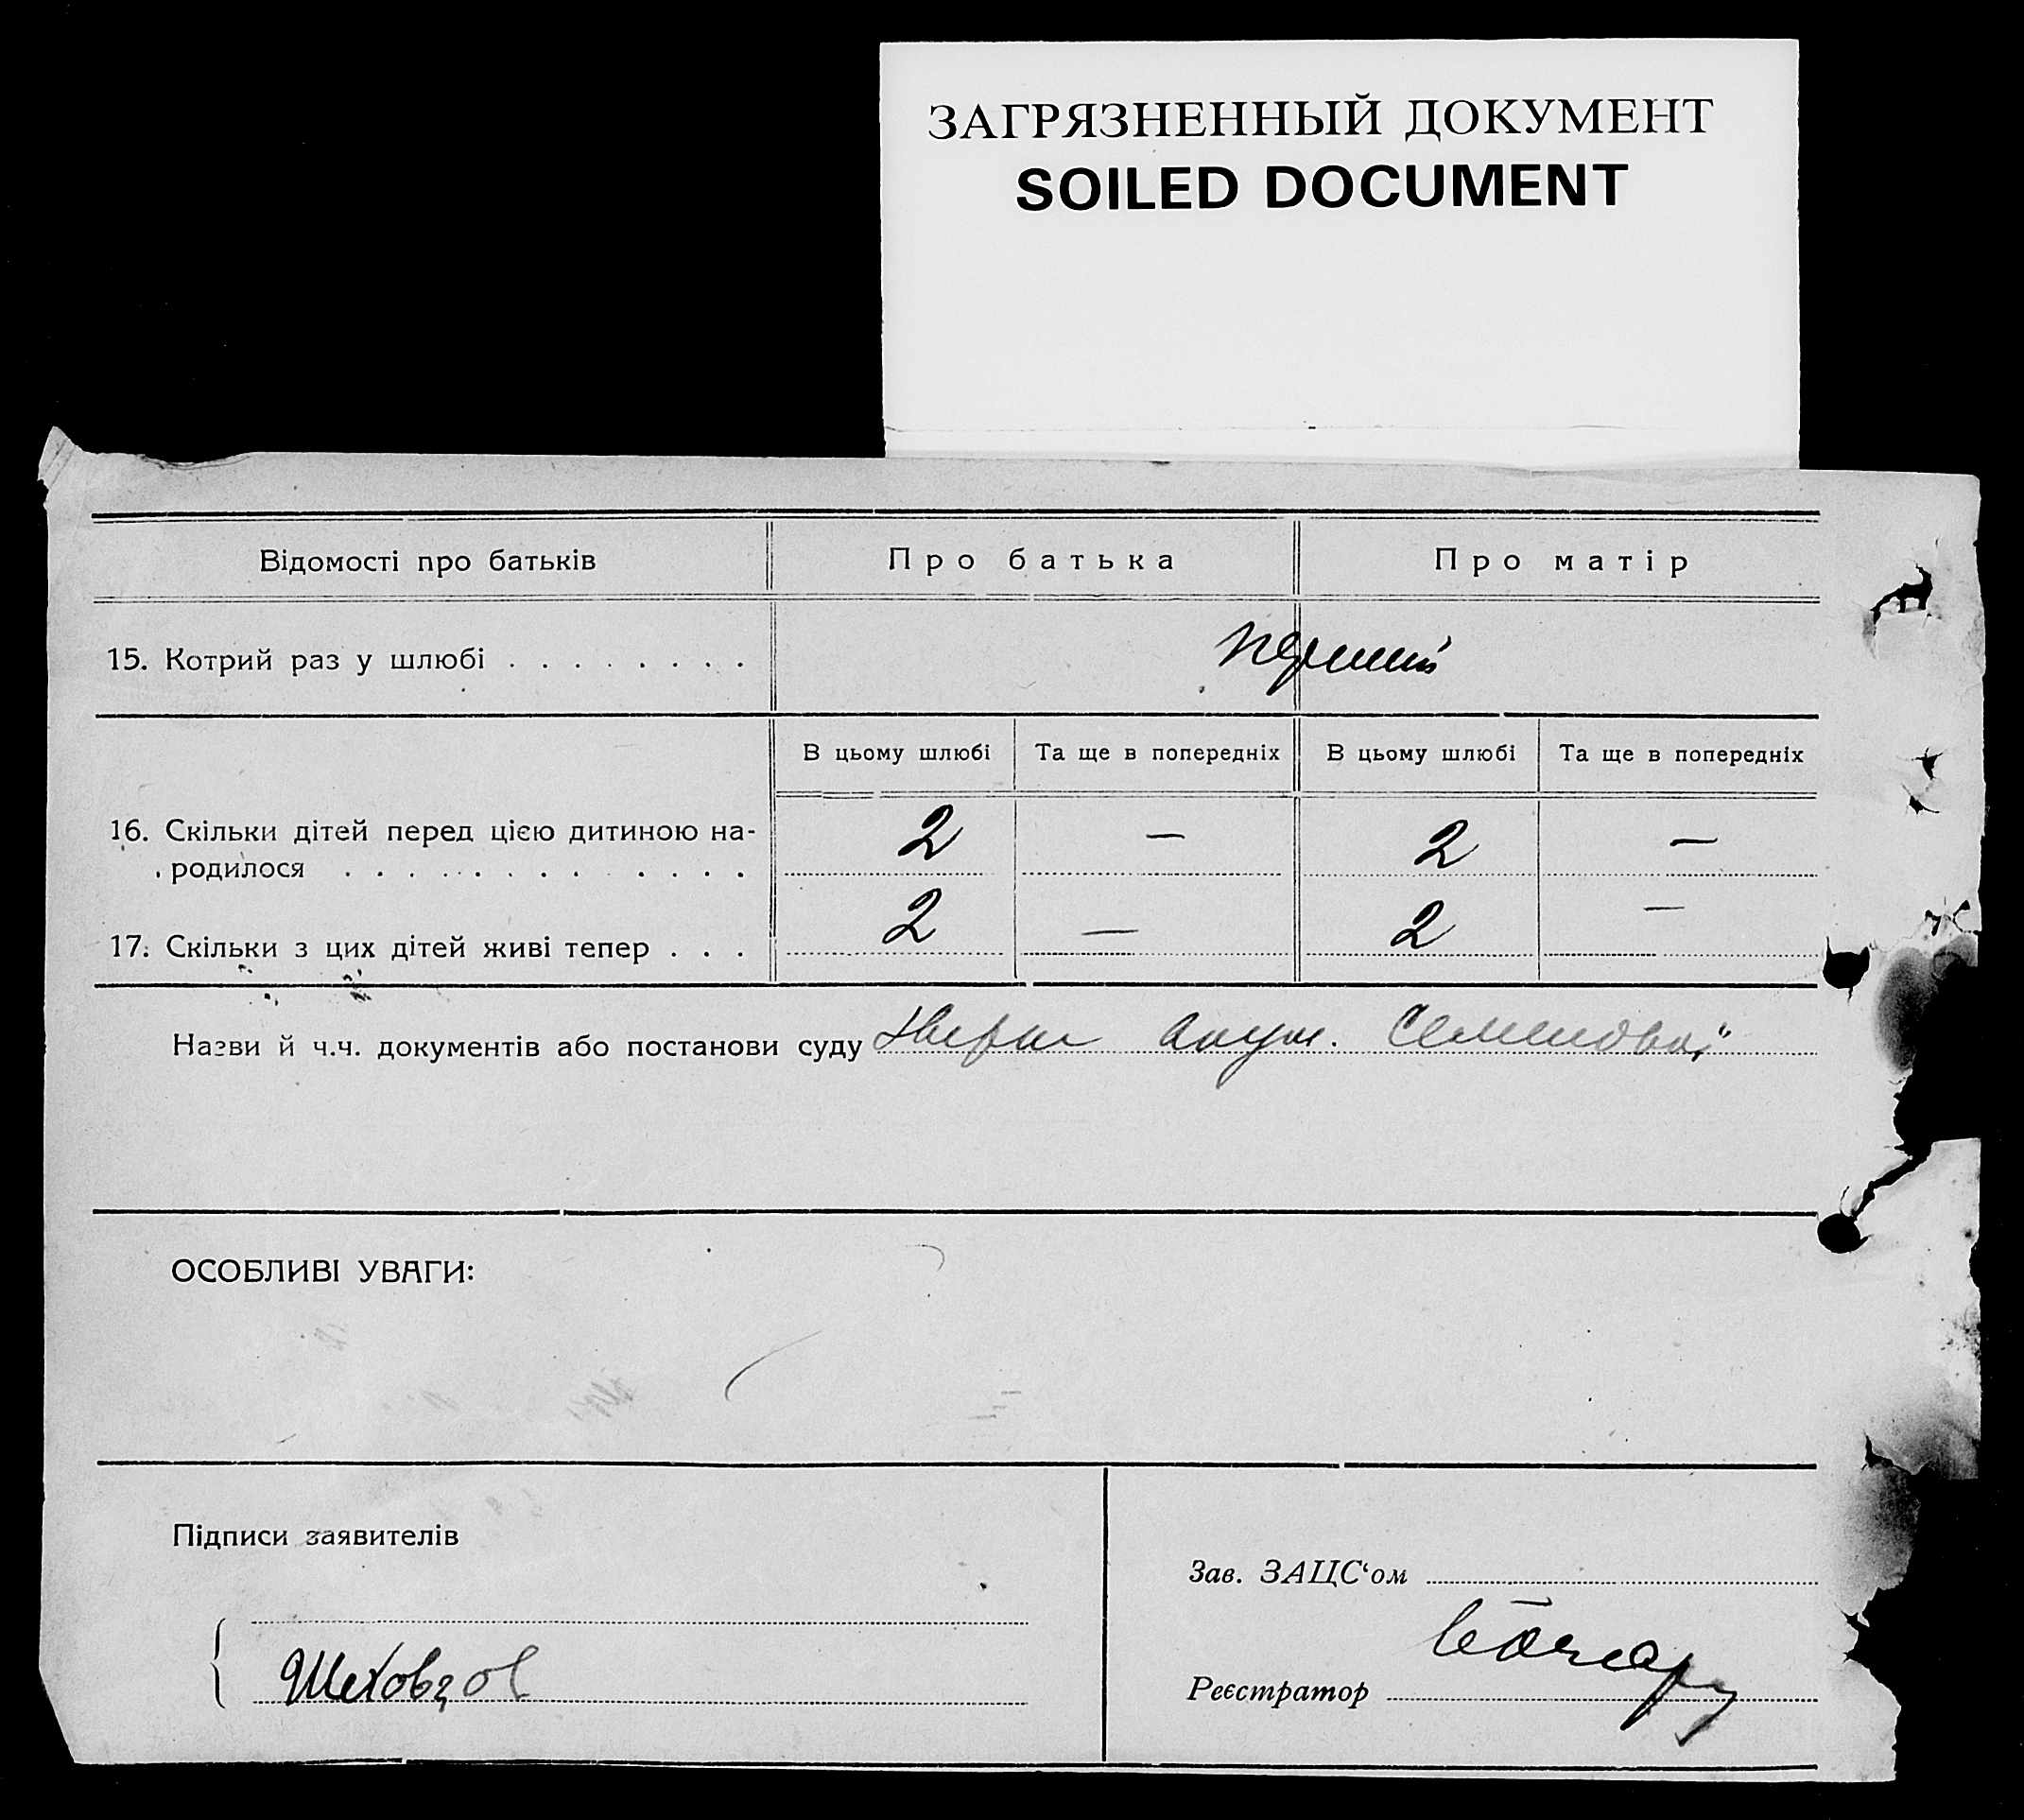 ЗАГРЯЗНЕННЫЙ ДОКУМЕНТ
SOILED DOCUMENT
Відомості про батьків Про батька Про матір
15. Котрий раз у шлюбі . . . . . . . . перший
В цьому шлюбі Та ще в попередніх В цьому шлюбі Та ще в попередніх
16. Скільки дітей перед цією дитиною на-
родилося . . . . . . . . . . . . . 2 — 2 —
17. Скільки з цих дітей живі тепер . . . 2 — 2 —
Назви й ч.ч. документів або постанови суду
ОСОБЛИВІ УВАГИ:
Підписи заявителів
Зав. ЗАЦС‘ом
Шеховцов
Реєстратор